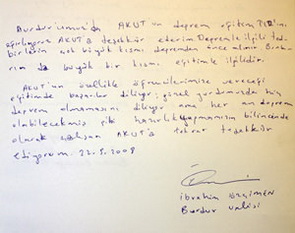 Burdur'umuz'da AKUT'un deprem eğitim TIR'ını
ağırlayarak AKUT'a teşekkür ederim Depremle ilgili ted
birlerin çok büyük kısmı depremden önce alınır Bunla
rın da büyük bir kısmı eğitimle ilgilidir.
AKUT'un özellikle öğrencilerimize vereceği
eğitimde başarılar diliyor, güzel yurdumuzda hiç
deprem olmamasını diliyor ama her an deprem
olabilecekmiş gibi hazırlık yapmanın bilincinde
olarak AKUT'a tekrar teşekkür
ediyorum. 22.5.2008
İbrahim Özçimen
Burdur Valisi